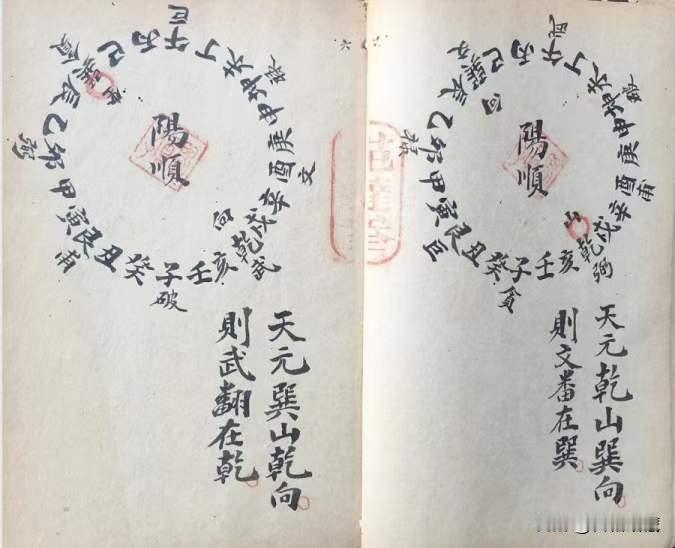 午丁未坤申庚酉辛戌乾亥壬子癸丑艮寅甲卯乙辰巽巳丙
武破甫弼貪巨祿文
山
向
陽順
天元乾山巽向
則文番在巽
午丁未坤申庚酉辛戌乾亥壬子癸丑艮寅甲卯乙辰巽巳丙
巨祿文武破甫弼貪
山
向
陽順
天元巽山乾向
則武翻在乾